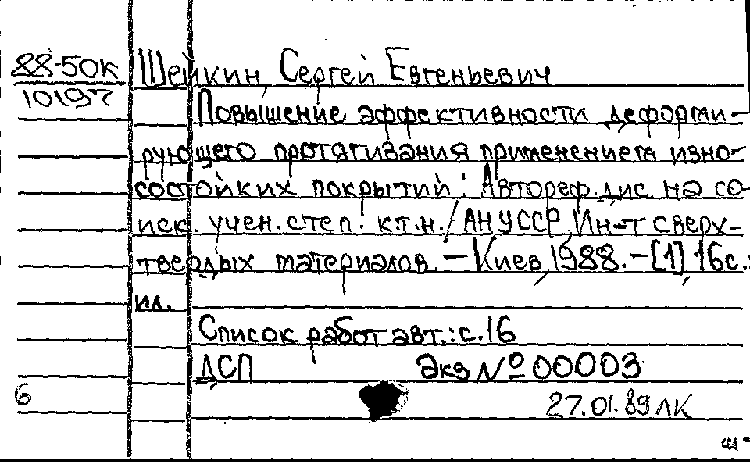 88-50К Шейкин, Сергей Евгеньевич
10197
Повышение эффективности деформи-
рующего протягивания применением изно-
состойких покрытий : Автореф. дис. на со-
иск. учен. степ. к.т.н. / АН УССР, Ин-т сверх-
твердых материалов. - Киев, 1988. - [1], 16 с.:
ил.
Список работ авт.: с. 16
ДСП Экз № 00003
6 27.01.89 ЛК